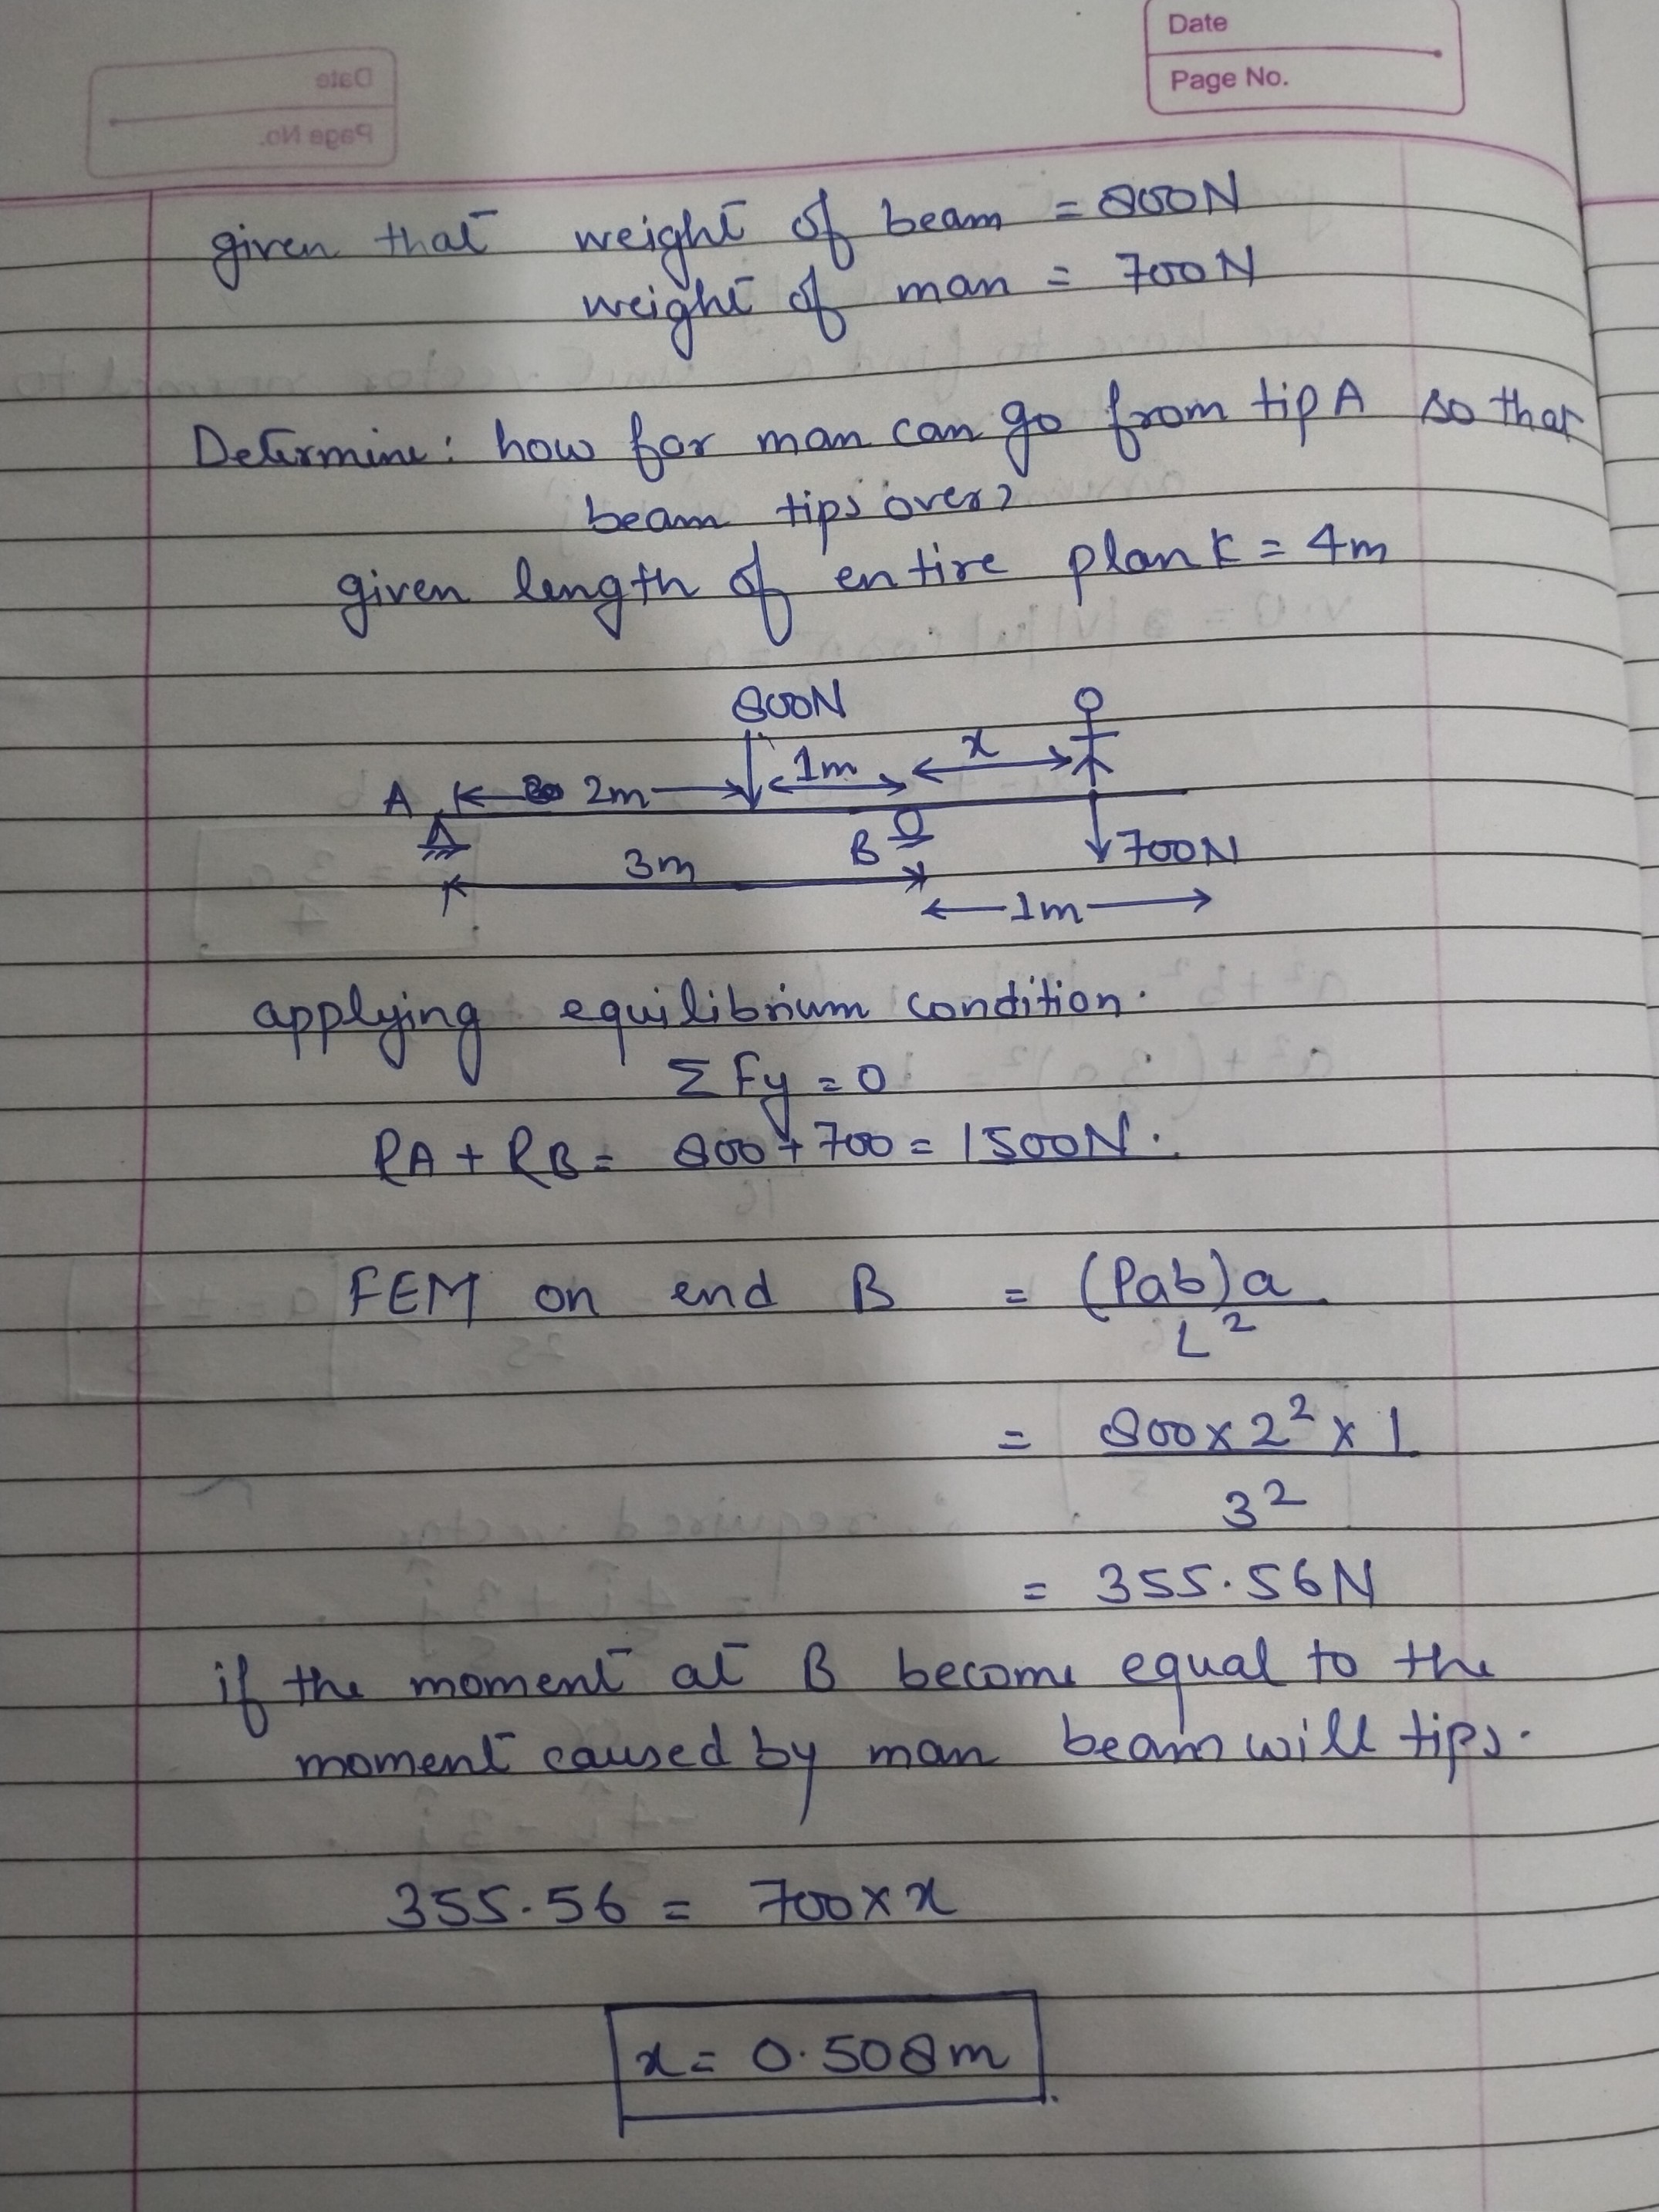 Date
Page No.
given that weight of beam = 800N
weight of man = 700N
Determine: how far man can go from tip A so that
beam tips over?
given length of entire plank = 4m
800N
A 2m 1m x
B 700N
3m
1m
applying equilibrium condition.
ΣFy = 0
RA + RB = 800 + 700 = 1500N.
FEM on end B = (Pab)a
L²
= 800 x 2² x 1
3²
= 355.56N
if the moment at B become equal to the
moment caused by man beam will tips.
355.56 = 700 x x
x = 0.508m